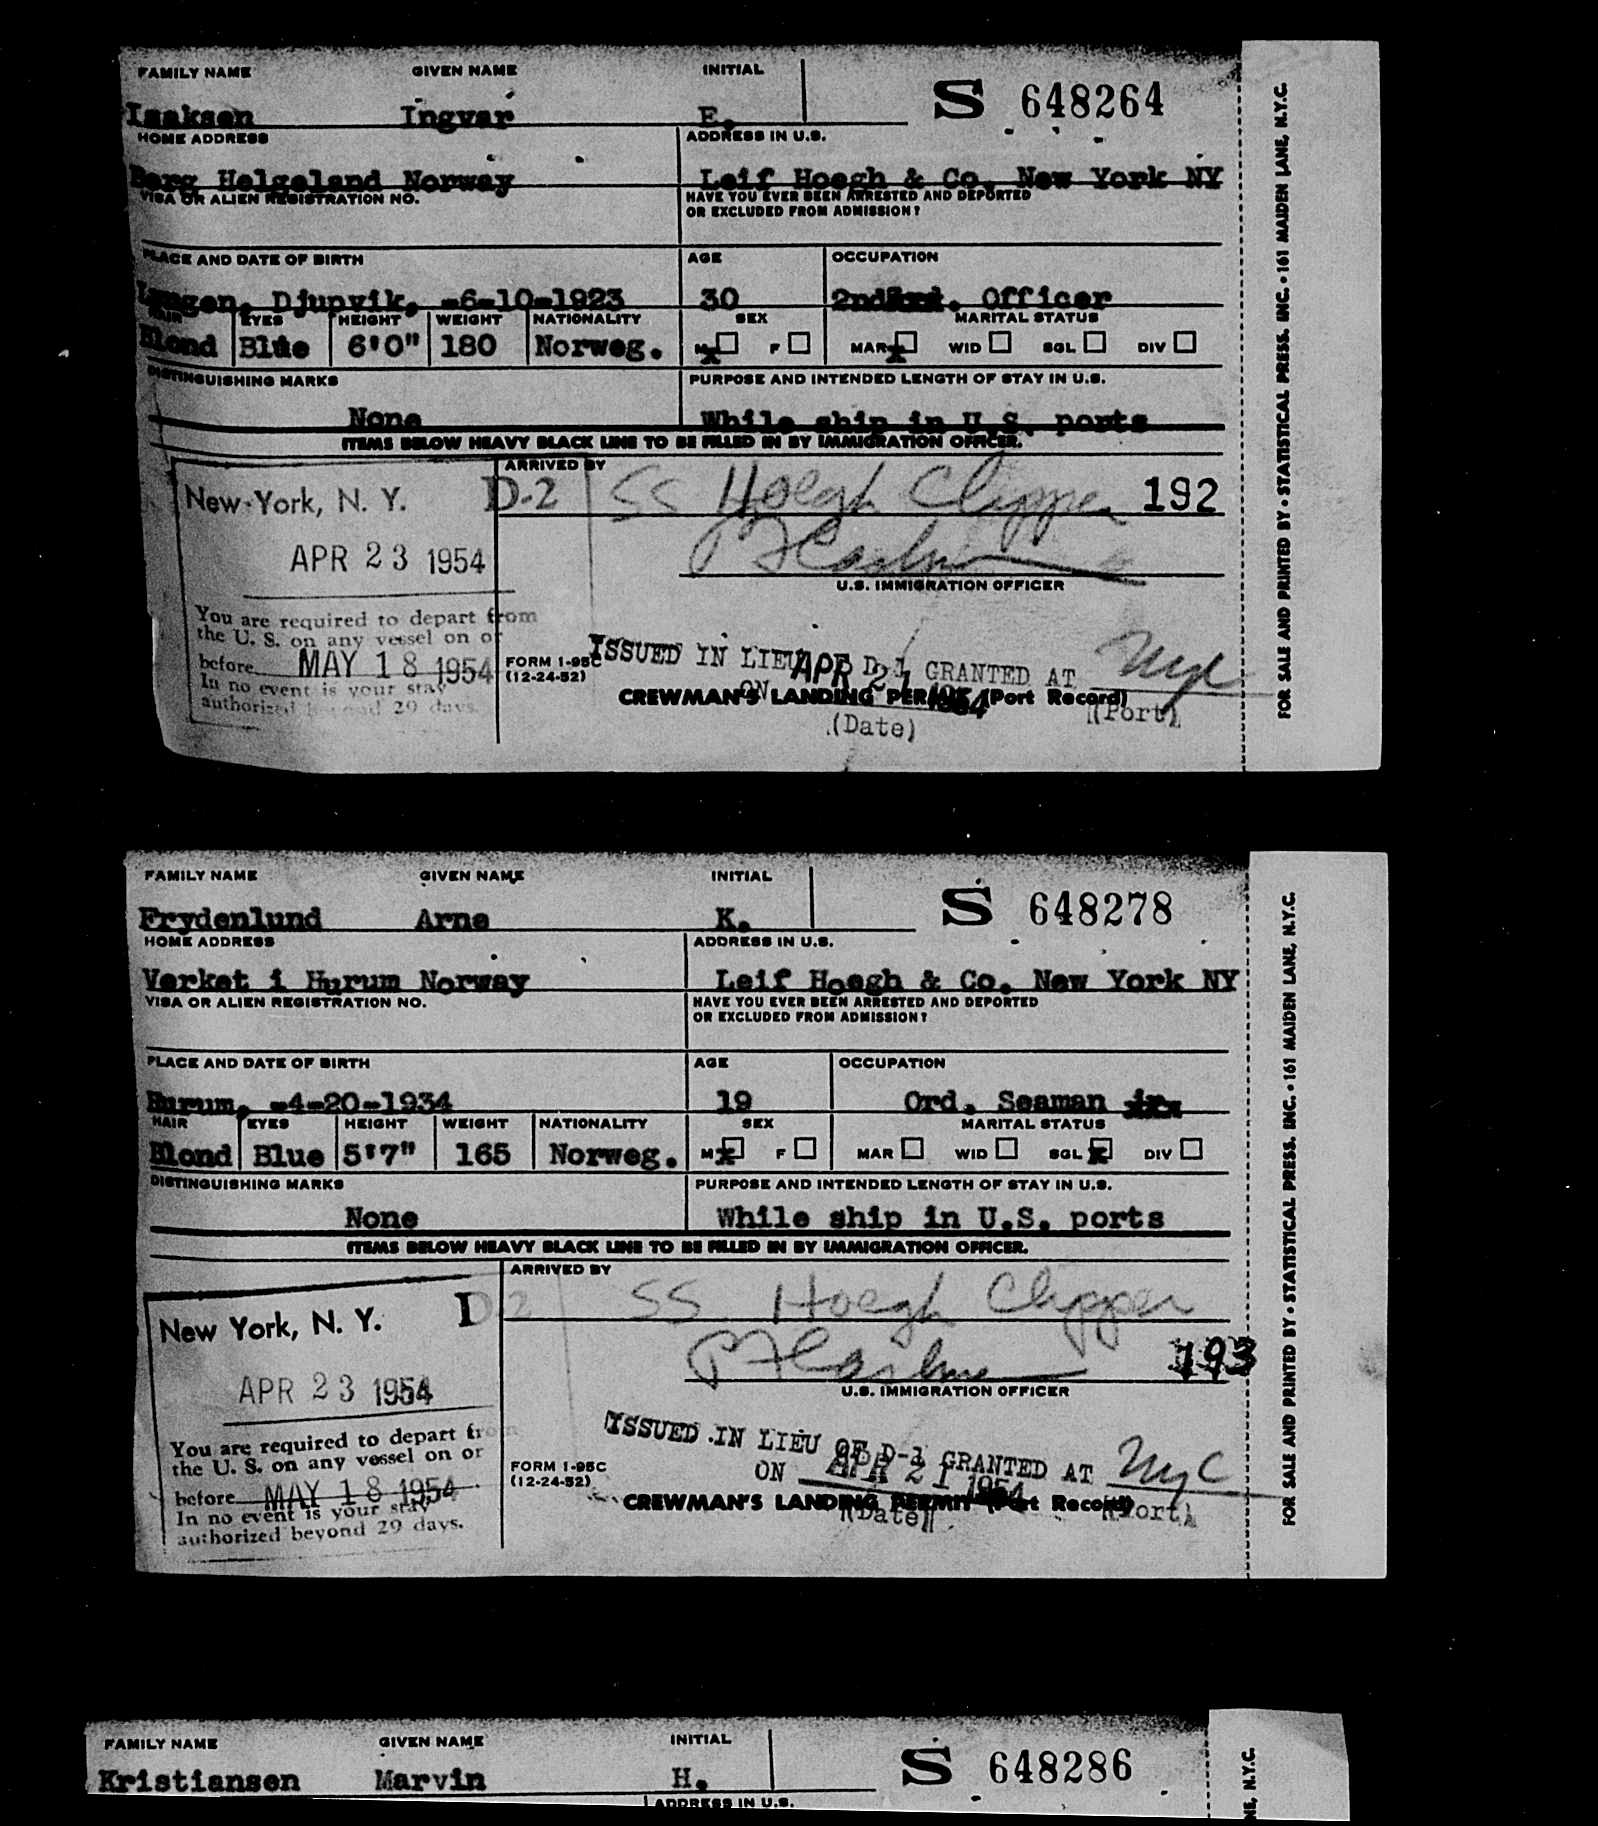 FAMILY NAME GIVEN NAME INITIAL
Isaksen Ingvar E. S 648264
HOME ADDRESS ADDRESS IN U.S.
Berg Helgeland Norway Leif Hoegh & Co. New York NY
VISA OR ALIEN REGISTRATION NO. HAVE YOU EVER BEEN ARRESTED AND DEPORTED
OR EXCLUDED FROM ADMISSION?
PLACE AND DATE OF BIRTH AGE OCCUPATION
Lyngen, Djupvik, -6-10-1923 30 2nd. Officer
HAIR EYES HEIGHT WEIGHT NATIONALITY SEX MARITAL STATUS
Blond Blue 6'0" 180 Norweg. M x F MAR x WID SGL DIV
DISTINGUISHING MARKS PURPOSE AND INTENDED LENGTH OF STAY IN U.S.
None While ship in U.S. ports
ITEMS BELOW HEAVY BLACK LINE TO BE FILLED IN BY IMMIGRATION OFFICER.
ARRIVED BY
New York, N. Y. D-2 SS Hoegh Clipper 192
APR 23 1954
U.S. IMMIGRATION OFFICER
You are required to depart from
the U. S. on any vessel on or
before MAY 18 1954
In no event is your stay
authorized beyond 29 days.
FORM I-95C
(12-24-52)
ISSUED IN LIEU OF D-1 GRANTED AT NYC
ON APR 21 1954
CREWMAN'S LANDING PERMIT (Port Record)
(Date) (Port)
FOR SALE AND PRINTED BY • STATISTICAL PRESS. INC. • 161 MAIDEN LANE, N.Y.C.
FAMILY NAME GIVEN NAME INITIAL
Frydenlund Arne K. S 648278
HOME ADDRESS ADDRESS IN U.S.
Verket i Hurum Norway Leif Hoegh & Co. New York NY
VISA OR ALIEN REGISTRATION NO. HAVE YOU EVER BEEN ARRESTED AND DEPORTED
OR EXCLUDED FROM ADMISSION?
PLACE AND DATE OF BIRTH AGE OCCUPATION
Hurum, -4-20-1934 19 Ord. Seaman
HAIR EYES HEIGHT WEIGHT NATIONALITY SEX MARITAL STATUS
Blond Blue 5'7" 165 Norweg. M x F MAR WID SGL x DIV
DISTINGUISHING MARKS PURPOSE AND INTENDED LENGTH OF STAY IN U.S.
None While ship in U.S. ports
ITEMS BELOW HEAVY BLACK LINE TO BE FILLED IN BY IMMIGRATION OFFICER.
ARRIVED BY
New York, N. Y. D-2 SS Hoegh Clipper
193
APR 23 1954
U.S. IMMIGRATION OFFICER
You are required to depart from
the U. S. on any vessel on or
before MAY 18 1954
In no event is your stay
authorized beyond 29 days.
FORM I-95C
(12-24-52)
ISSUED IN LIEU OF D-1 GRANTED AT NYC
ON APR 21 1954
CREWMAN'S LANDING PERMIT (Port Record)
(Date) (Port)
FOR SALE AND PRINTED BY • STATISTICAL PRESS. INC. • 161 MAIDEN LANE, N.Y.C.
FAMILY NAME GIVEN NAME INITIAL
Kristiansen Marvin H. S 648286
ADDRESS IN U.S.
NE, N.Y.C.